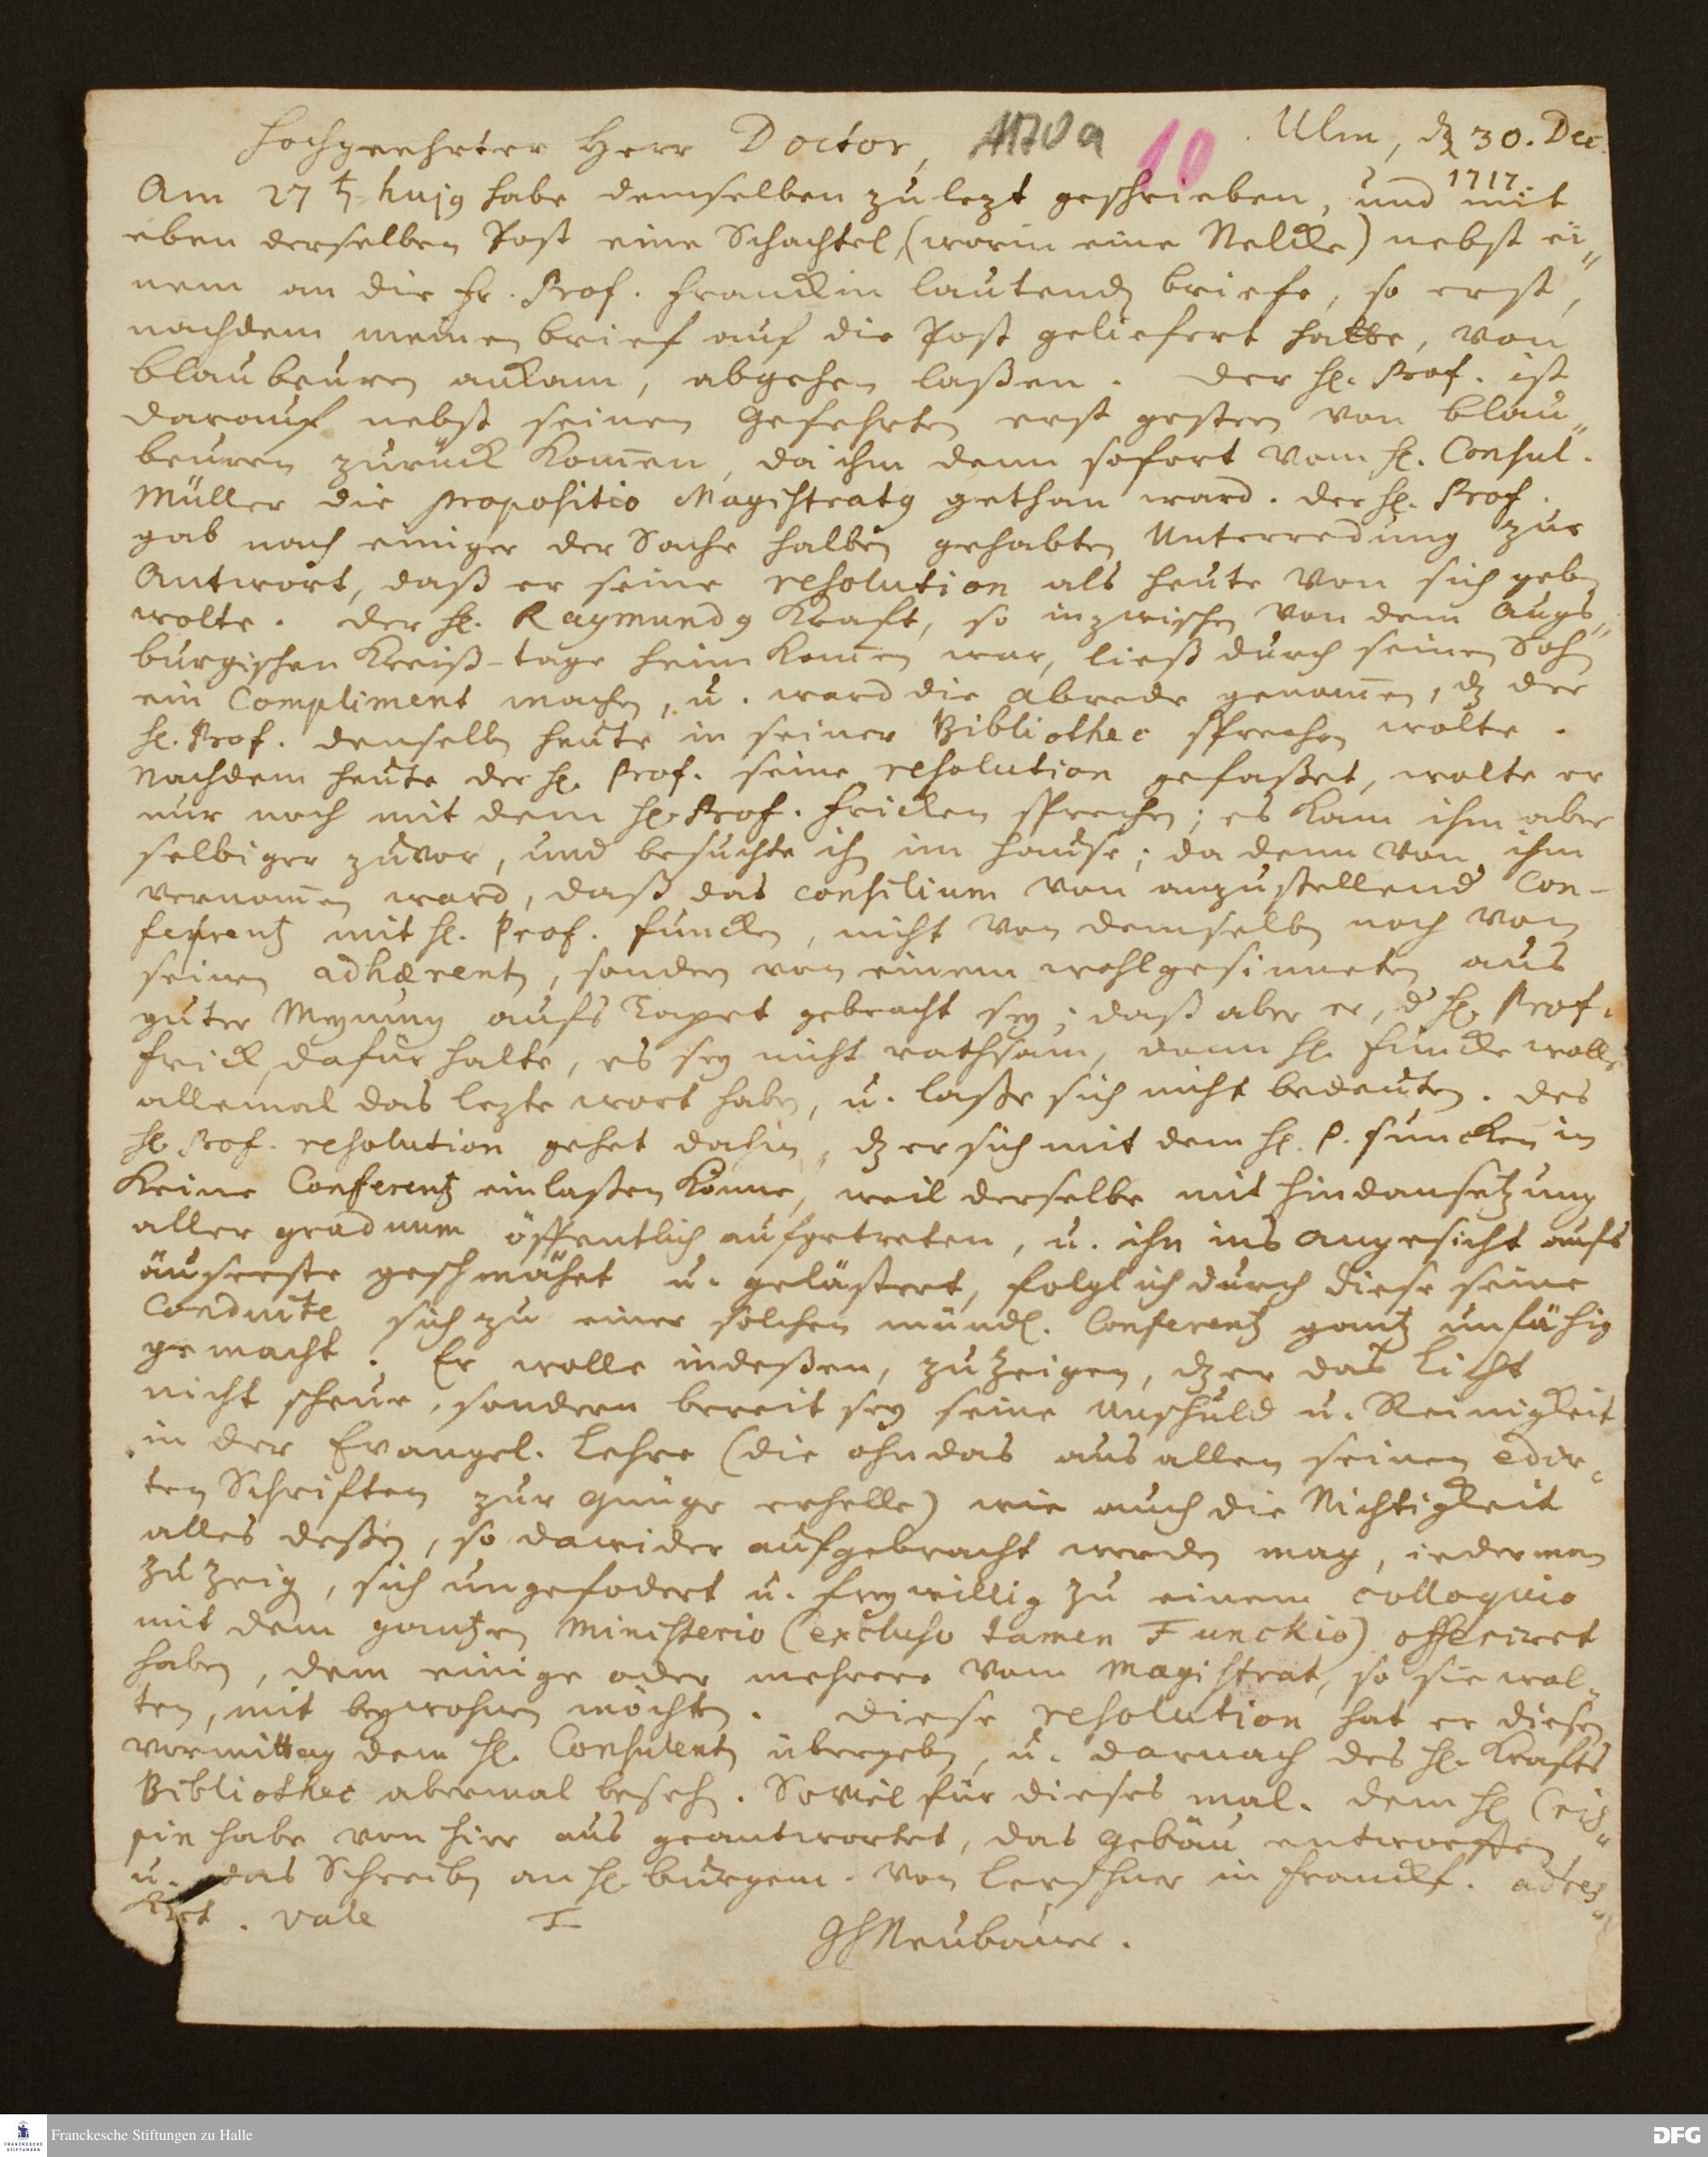 Hochgeehrter Herr Doctor, 1170a 10 Ulm, dz 30. Dec.
1717.
Am 27t. hujq habe demselben zu lezt geschrieben, und mit
eben derselben Post eine Schachtel (worin eine Nelcke) nebst ei„
nem an die Fr. Prof. Franckin lautend briefe, so erst,
nachdem meinen brief auf die Post geliefert hatte, von
blaubeuren ankam, abgehen laßen. Der H. Prof. ist
darauf nebst seinen Gefehrten erst gestern von blau„
beuren zurück kom̄en, da ihm denn sofort vom H. Consul.
Müller die propositio Magistratq gethan ward. Der H. Prof.
gab nach einiger der Sache halben gehabten Unterredung zur
Antwort, daß er seine resolution als heute von sich geben
wolte. Der H. Raymundq Krafft, so inzwischen von dem Augs„
burgischen Kreiß-tage heim kom̄en war, ließ durch seinen Sohn
ein Compliment machen, u. ward die abrede genom̄en, dz der
H. Prof. denselben heute in seiner Bibliothec sprechen wolte.
Nachdem heute der H. Prof. seine resolution gefaßet, wolte er
nur noch mit dem H. Prof. Fricken sprechen; es kam ihm aber
selbiger zuvor, und besuchte ihn im Hause; da denn von ihm
vernom̄en ward, daß das consilium von anzustellend Con-
ferentz mit H. Prof. Funcken, nicht von demselben noch von
seinen adhærenten, sondern von einem wohlgesinneten aus
guter Meynung aufs Tapet gebracht sey; daß aber er, d H. Prof.
Frick, dafür halte, es sey nicht rathsam, denn H. Funcke wolle
allemal das lezte wort haben, u. laße sich nicht bedeuten. Des
H. Prof. resolution gehet dahin, dz er sich mit dem H. P. Funcken in
keine Conferentz einlaßen könne, weil derselbe mit hindansetzung
aller graduum öffentlich aufgetreten, u. ihn ins angesicht aufs
äuserste geschmähet u. gelästert, folglich durch diese seine
Conduite sich zu einer solchen mündl. Conferentz gantz unfähig
gemacht. Er wolle indeßen, zu zeigen, dz er das Licht
nicht scheue, sondern bereit sey seine Unschuld u. Reinigkeit
in der Evangel. Lehre (die ohndas aus allen seinen edir„
ten Schriften zur gnüge erhelle) wie auch die Nichtigkeit
alles deßen, so dawider aufgebracht werden mag, iederman
zu zeig, sich ungefodert u. freywillig zu einem colloquio
mit dem gantzen Ministerio (excluso tamen Funckio) offeriret
haben, dem einige oder mehrere vom Magistrat, so sie wol„
ten, mit beywohnen möchten. Diese resolution hat er diesen
vormittag dem H. Consulenten übergeben, u. darnach des H. Kraffts
Bibliothec abermal besehen. So viel für dieses mal. Dem H
habe von hier aus geantwortet, das Gebäu entworffen,
u. das Schreiben an H. burgem. von Lerschner in Franckf. adres„
. Vale
GHNeubauer.
Franckesche Stiftungen zu Halle
FRANCKESCHE STIFTUNGEN
DFG